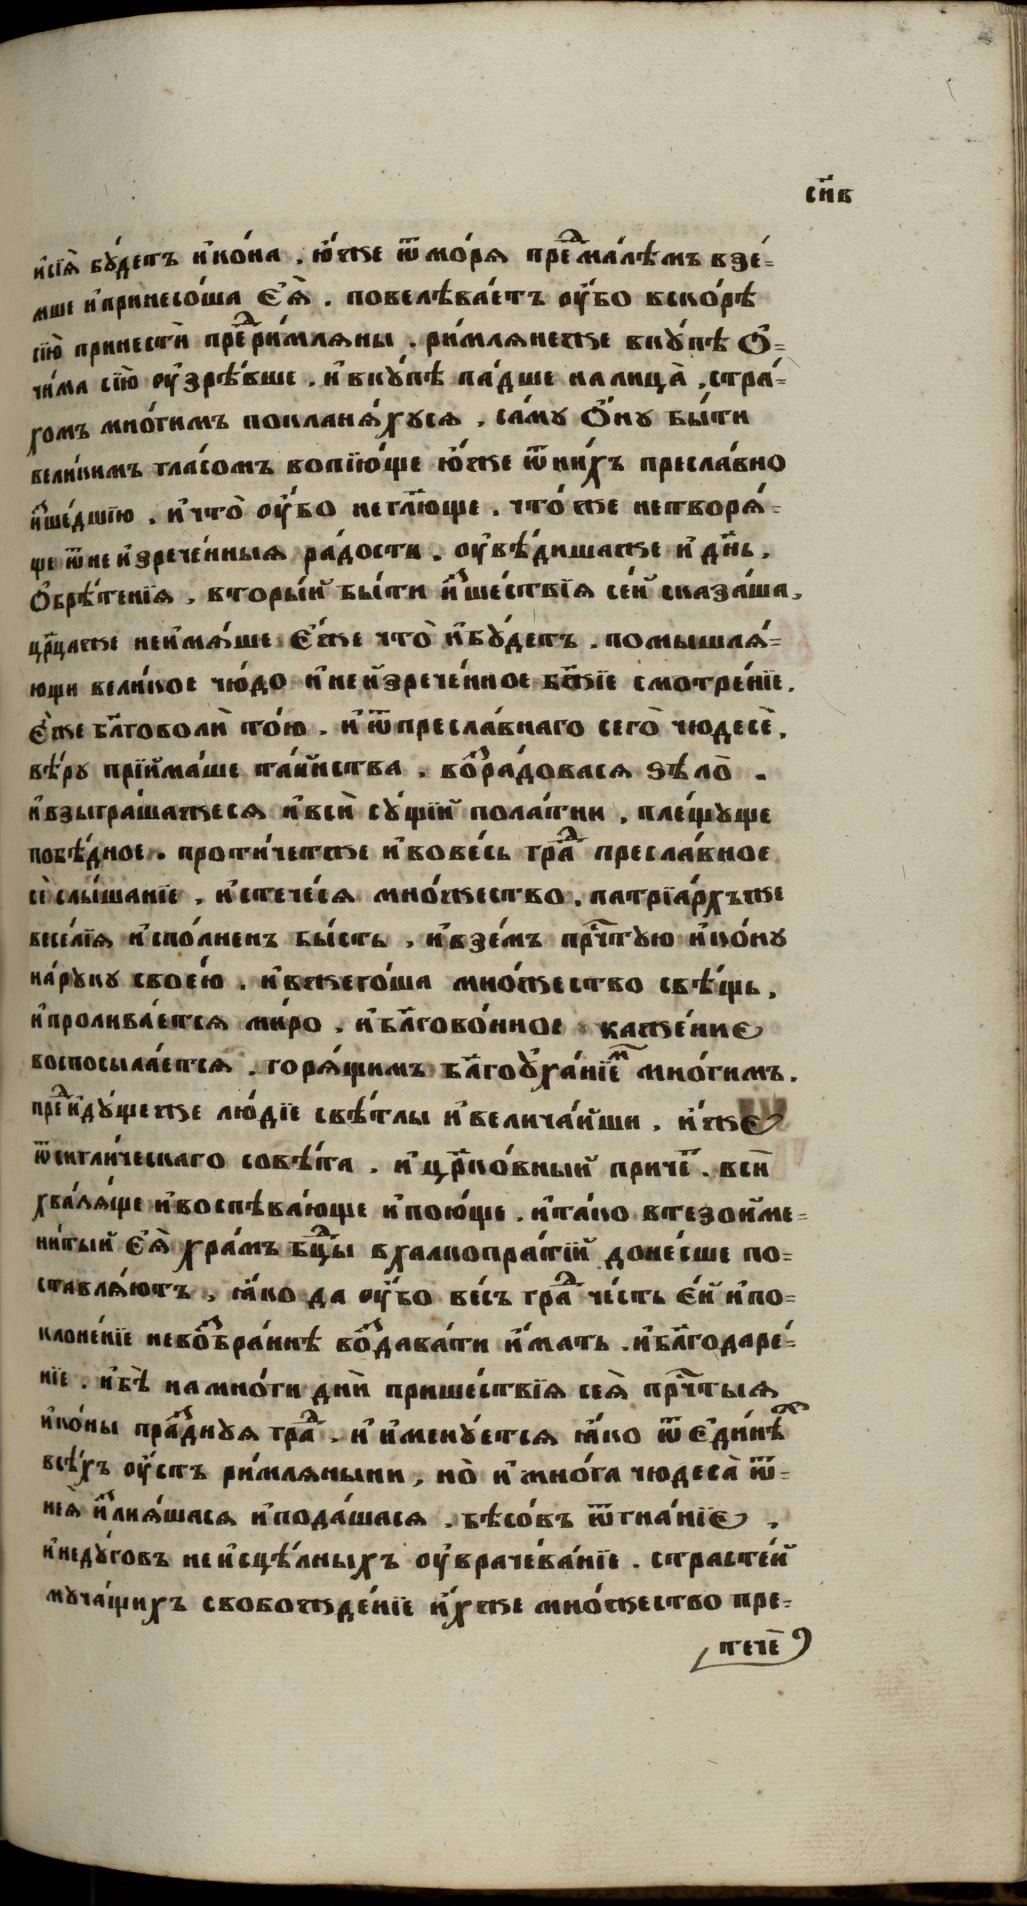 сн҃в
и҆сїѧ̀ бꙋ́детъ и҆ко́на , ю҆́же ѿ мо́рѧ пре́д̾ма́лѣмъ взе́=
мше и҆ принесо́ша є҆ѧ̀ . повелѣва́етъ ᲂу҆́бо вско́рѣ
сїю̀ принестѝ пре́д̾ри́млѧны . ри́млѧнеже вкꙋ́пѣ ѻ҆=
чи́ма сїю̀ ᲂу҆зрѣ́вше , и҆ вкꙋ́пѣ па́дше налица̀ , стра́=
хомъ мно́гимъ покланѧ́хꙋсѧ , са́мꙋ ѻ҆́нꙋ бы́ти
вели́кимъ гла́сомъ вопїю́ще ю҆́же ѿни́хъ пресла́вно
и҆зше́дшїю . и҆ что̀ ᲂу҆́бо негл҃юще . что́же нетворѧ́=
ще ѿ неи҆зрече́нныѧ ра́дости . ᲂу҆вѣ́дишаже и҆ дн҃ь ,
ѻ҆брѣ́тенїѧ , вторы́й бы́ти и҆зше́ствїѧ се́й сказа́ша ,
цр҃цаже неи҆мѧ́ше є҆́же что̀ и҆ бꙋ́детъ . помышлѧ́=
ющи вели́кое чю́до и҆ неи҆зрече́нное бж҃їе смотре́нїе ,
є҆́же бл҃говолѝ то́ю . и҆ ѿ пресла́внаго сего̀ чюдесѐ ,
вѣ́рꙋ прїйма́ше та́йнства . во́зра́довасѧ ѕѣло̀ .
и҆ взыгра́шажесѧ и҆ всѝ сꙋ́щїй пола́тни , пле́щꙋще
побѣ́дное . проти́четже и҆ вове́сь гра́д пресла́вное
сѐ слы́шанїе , и҆ стече́сѧ мно́жество . патрїа́рхъже
весе́лїѧ и҆спо́лненъ бы́сть , и҆ взе́мъ пр҃чⷭ҇тꙋю и҆ко́нꙋ
на́рꙋкꙋ свое́ю . и҆ вжего́ша мно́жество свѣ́щь ,
и҆ пролива́етсѧ ми́ро , и҆ бл҃гово́нное каже́нне
воспосыла́етсѧ . горѧ́щимъ бл҃гоꙋха́нїемⷨ мно́гимъ .
пре́дидꙋ́щеже лю́дїе свѣ́тлы и҆ велича́йши , и҆́же
ѿ сигли́ческаго совѣ́та . и҆ цр҃ко́вный приче́т . всѝ
хва́лѧще и҆ воспѣва́юще и҆ пою́ще . и҆ та́ко втезоиме=
ни́тый є҆ѧ̀ хра́мъ бц҃ы вхалкопра́тїй доне́сше по=
ставлѧ́ютъ , ꙗ҆́ко да ᲂу҆́бо ве́сь гра́д че́сть є҆́й и҆ по=
клоне́нїе нево́збра́ннѣ во́здава́ти и҆́мать . и҆ бл҃годаре́=
нїе . и҆ бѣ̀ намно́ги днѝ прише́ствїѧ сеѧ̀ пр҃чⷭ҇тыѧ
и҆ко́ны пра́зднꙋѧ гра́д . и҆ и҆менꙋ́етсѧ ꙗ҆́ко ѿ є҆ди́нѣхⷯ
всѣ́хъ ᲂу҆́стъ ри́млѧныни , но̀ и҆ мно́га чюдеса̀ ѿ=
неѧ̀ и҆злиѧ́шасѧ и҆ пода́шасѧ . бѣсо́въ ѿгна́нїе ,
и҆ недꙋ́говъ неи҆сцѣ́лныхъ ᲂу҆врачева́нїе . страсте́й
мꙋча́щихъ свобожде́нїе и҆́хже мно́жество пре=
течѐ